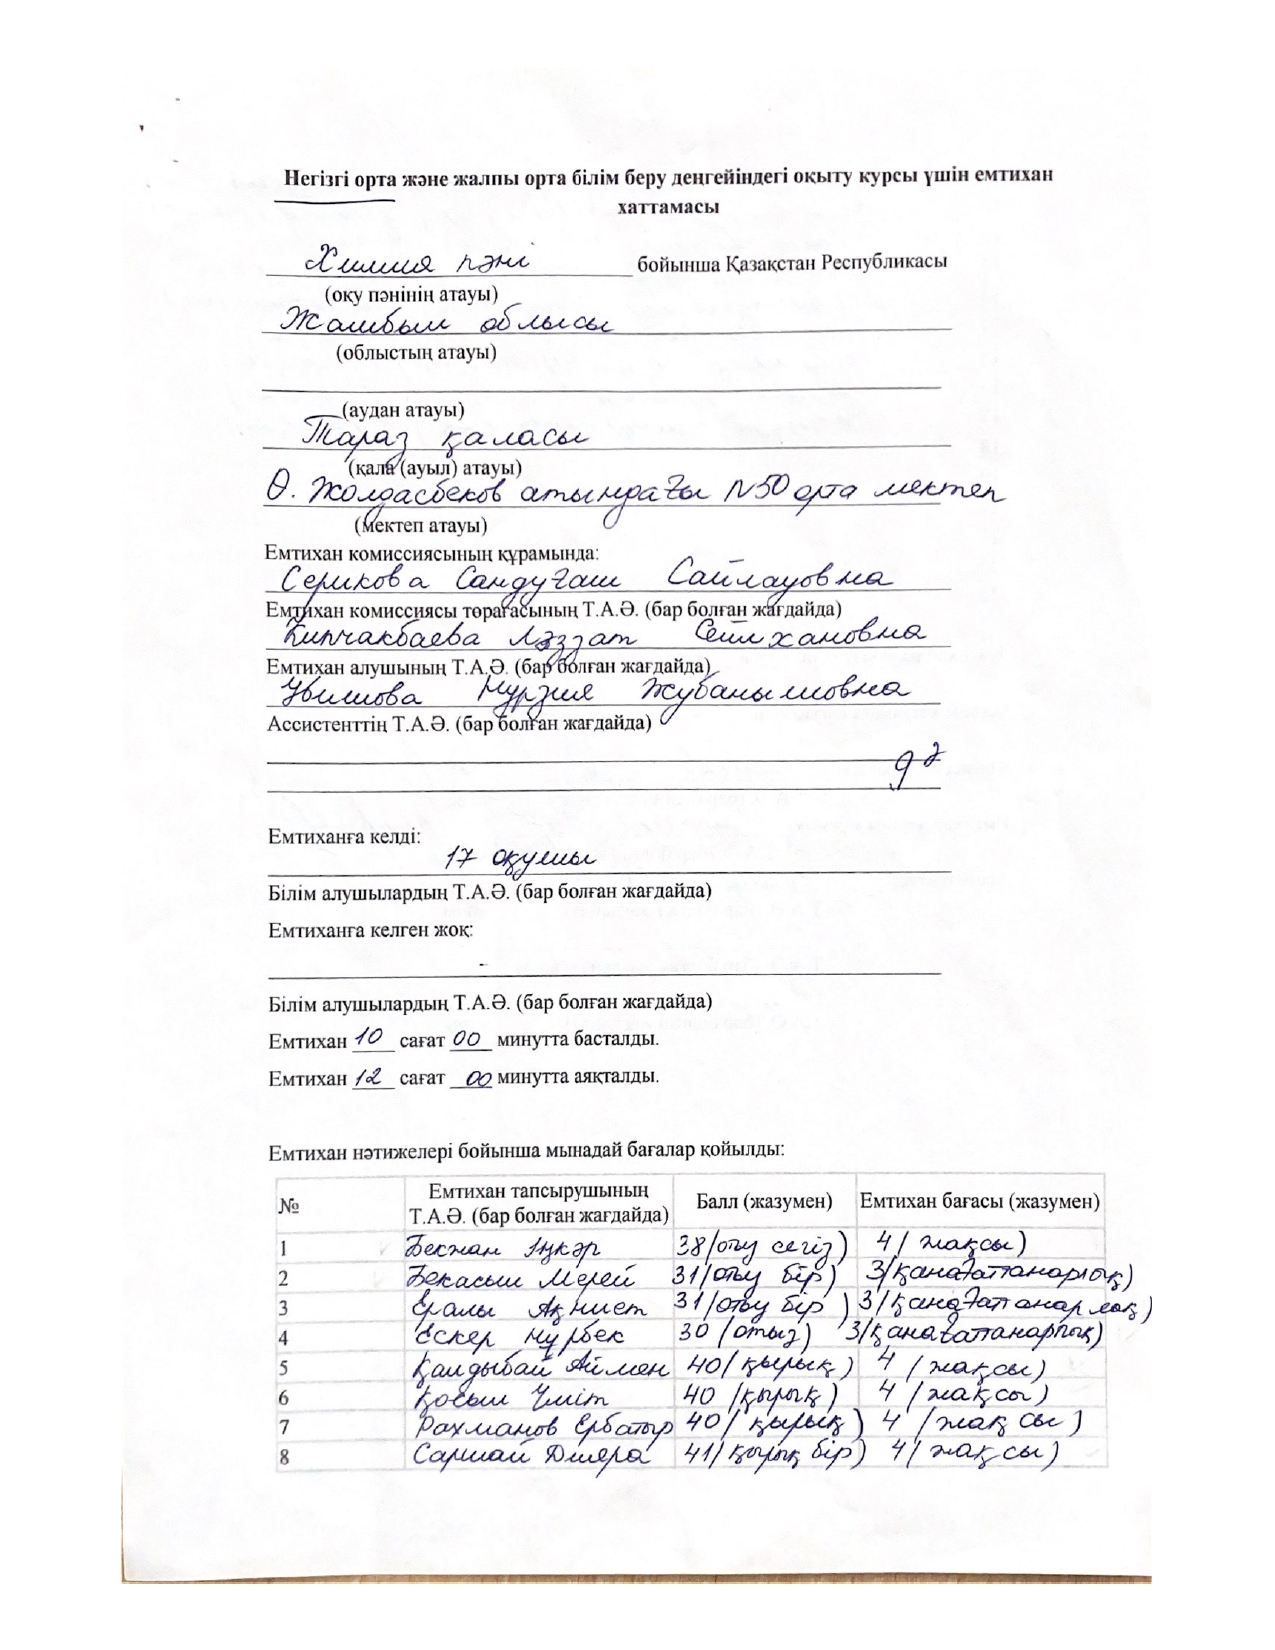 Негізгі орта және жалпы орта білім беру деңгейіндегі оқыту курсы үшін емтихан
хаттамасы
Химия пәні бойынша Қазақстан Республикасы
(оқу пәнінің атауы)
Жамбыл облысы
(облыстың атауы)
(аудан атауы)
Тараз қаласы
(қала (ауыл) атауы)
Ө. Жолдасбеков атындағы №50 орта мектеп
(мектеп атауы)
Емтихан комиссиясының құрамында:
Серикова Сандуғаш Сайлауовна
Емтихан комиссиясы төрағасының Т.А.Ә. (бар болған жағдайда)
Кипчакбаева Ләззат Сейлхановна
Емтихан алушының Т.А.Ә. (бар болған жағдайда)
Нурзия Жубанышовна
Ассистенттің Т.А.Ә. (бар болған жағдайда)
9 ә
Емтиханға келді:
17 оқушы
Білім алушылардың Т.А.Ә. (бар болған жағдайда)
Емтиханға келген жоқ:
-
Білім алушылардың Т.А.Ә. (бар болған жағдайда)
Емтихан 10 сағат 00 минутта басталды.
Емтихан 12 сағат 00 минутта аяқталды.
Емтихан нәтижелері бойынша мынадай бағалар қойылды:
№ Емтихан тапсырушының Т.А.Ә. (бар болған жағдайда) Балл (жазумен) Емтихан бағасы (жазумен)
1 Бекжан Іңкәр 38 (отыз сегіз) 4 (жақсы)
2 Бекасыл Мерей 31 (отыз бір) 3 (қанағаттанарлық)
3 Ералы Ақниет 31 (отыз бір) 3 (қанағаттанарлық)
4 Ескер Нұрбек 30 (отыз) 3 (қанағаттанарлық)
5 Қалдыбай Аймен 40 (қырық) 4 (жақсы)
6 Қосын Үміт 40 (қырық) 4 (жақсы)
7 Рахманов Ербатыр 40 (қырық) 4 (жақсы)
8 Сармай Дилера 41 (қырық бір) 4 (жақсы)